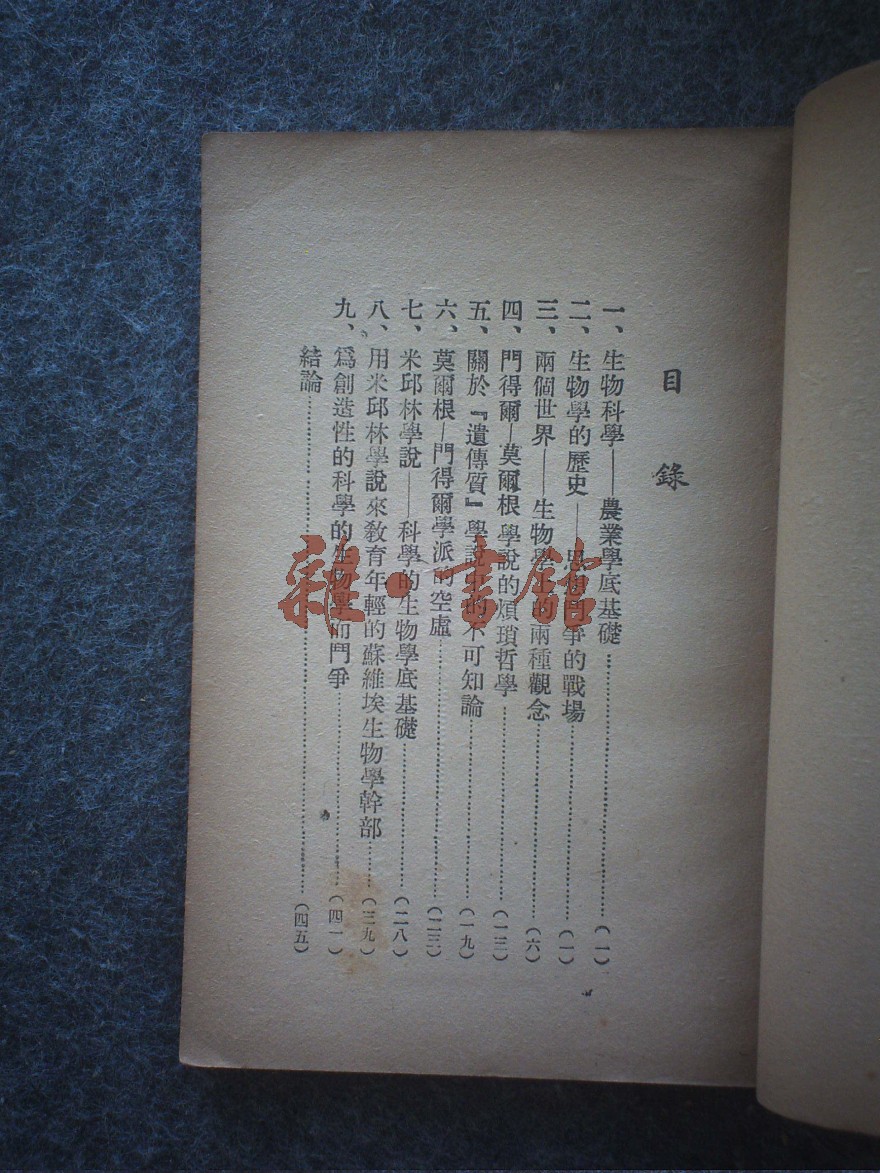 目錄
一、生物科學——農業學底基礎……(一)
二、生物學的歷史——思想鬥爭的戰場……(一)
三、兩個世界——生物學上的兩種觀念……(六)
四、門得爾—莫爾根學說的煩瑣哲學……(一三)
五、關於『遺傳質』學說中的不可知論……(一九)
六、莫爾根—門得爾學派的空虛……(二三)
七、米邱林學說——科學的生物學底基礎……(二八)
八、用米邱林學說來敎育年輕的蘇維埃生物學幹部……(三九)
九、爲創造性的科學的生物學而鬥爭……(四一)
結論……(四五)
雜·書館